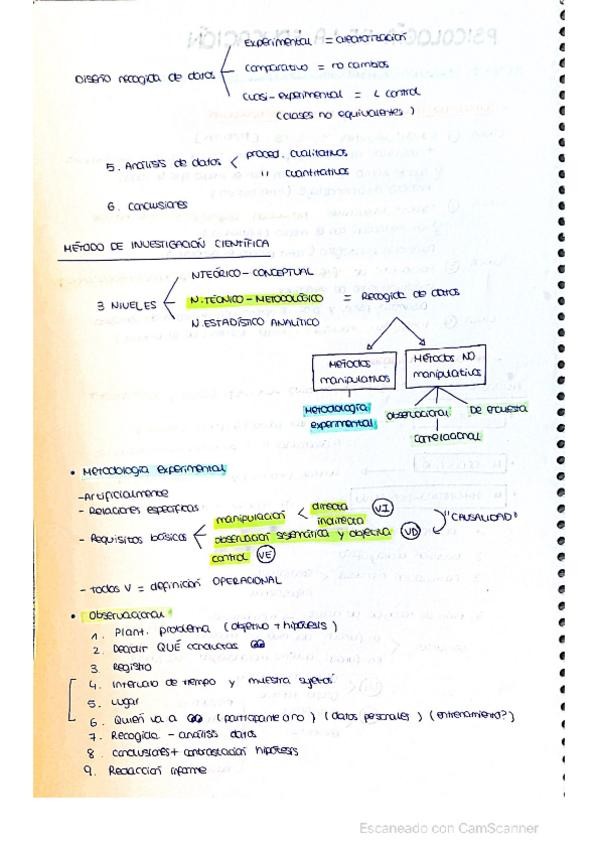 Experimental = aleatorización
Diseño recogida de datos
comparativo = no cambios
cuasi-experimental = L control
(clases no equivalentes)
5. Análisis de datos < proced. cualitativos
" cuantitativos
6. Conclusiones
MÉTODO DE INVESTIGACIÓN CIENTÍFICA
N.TEÓRICO-CONCEPTUAL
3 NIVELES
N.TÉCNICO-METODOLÓGICO = Recogida de datos
N.ESTADÍSTICO ANALÍTICO
Métodos manipulativos
Métodos NO manipulativos
Metodología experimental
Observacional
De encuesta
Correlacional
• Metodología experimental
-Artificialmente
- Relaciones específicas
manipulación < directa
indirecta
VI
"CAUSALIDAD"
- Requisitos básicos
observación sistemática y objetiva VD
control VE
- Todas V = definición OPERACIONAL
• Observacional
1. Plant. problema (objetivo + hipótesis)
2. Decidir QUÉ conductas
3. Registro
4. Intervalo de tiempo y muestra sujetos
5. Lugar
6. Quién va a (participante o no) (datos personales) (entrenamiento?)
7. Recogida - análisis datos
8. conclusiones + contrastación hipótesis
9. Redacción informe
Escaneado con CamScanner